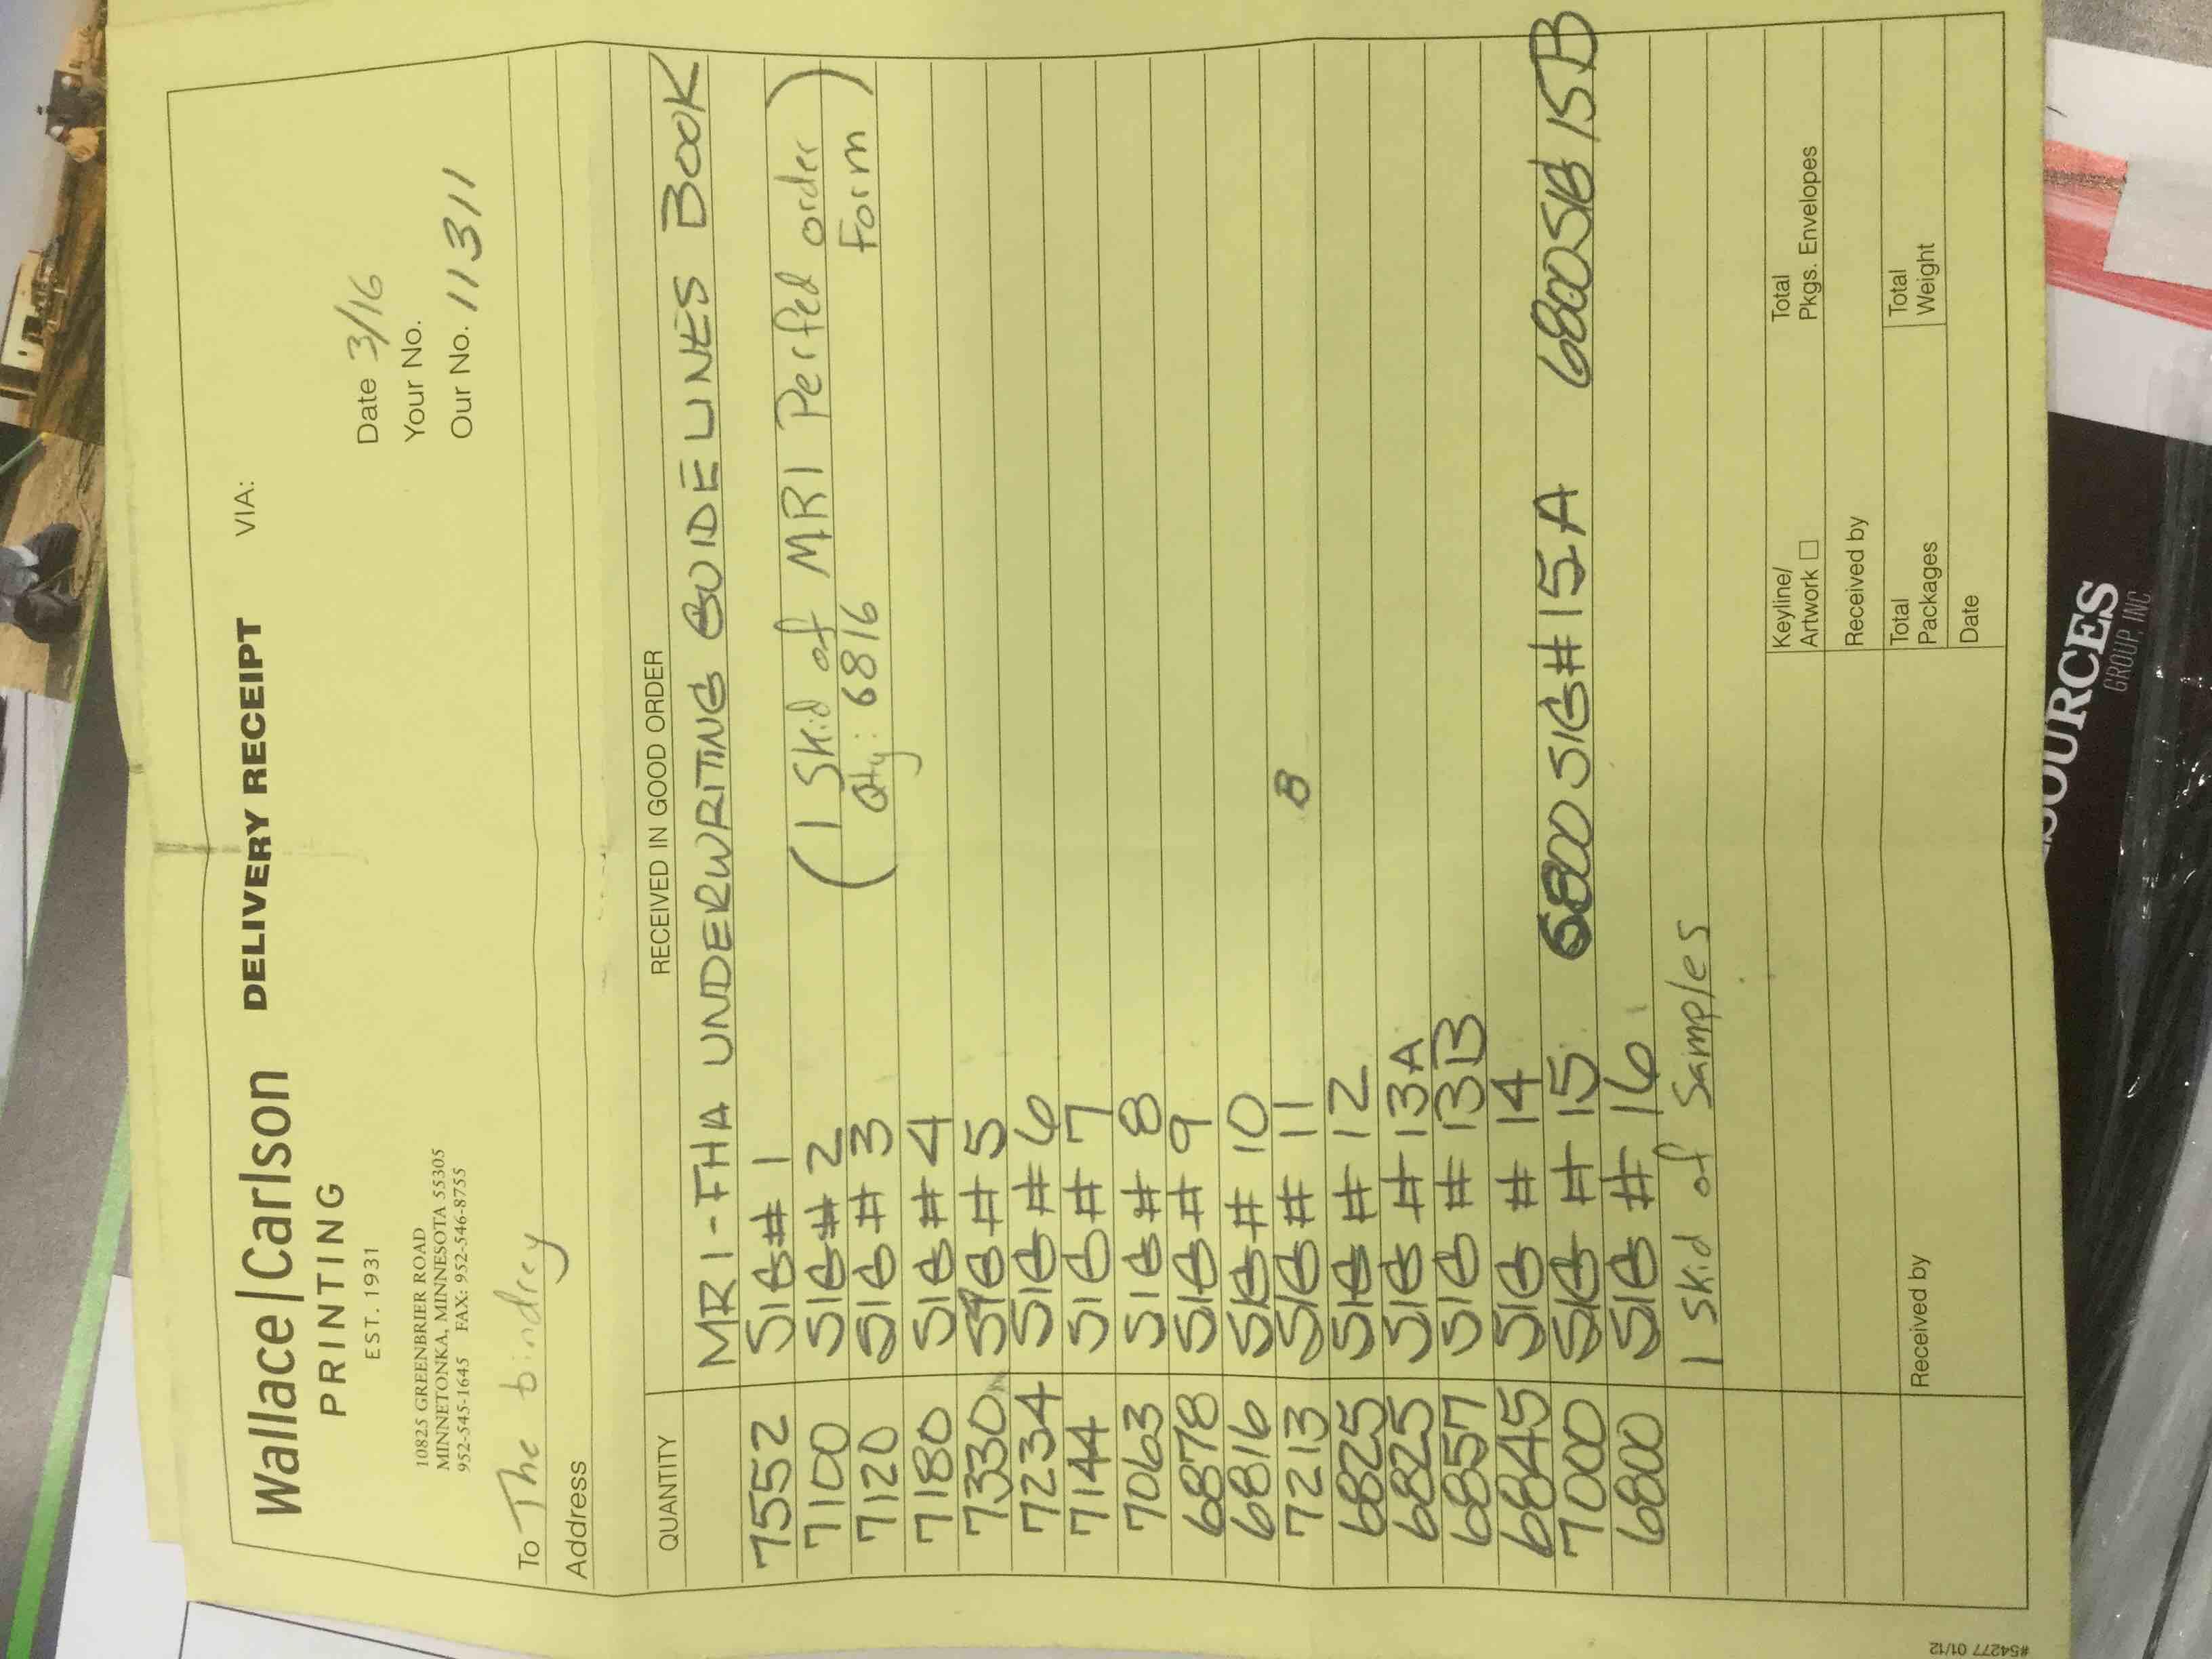 Wallace|Carlson DELIVERY RECEIPT VIA:
PRINTING
EST. 1931
Date 3/16
Your No.
Our No. 11311
10825 GREENBRIER ROAD
MINNETONKA, MINNESOTA 55305
952-545-1645 FAX: 952-546-8755
To The bindrey
Address
QUANTITY RECEIVED IN GOOD ORDER
MRI-FHA UNDERWRITING GUIDELINES BOOK
7552 SIG# 1
7100 SIG# 2 (1 Skid of MRI Perfed order
7120 SIG # 3 Qty: 6816 Form)
7180 SIG # 4
7330 SIG # 5
7234 SIG # 6
7144 SIG # 7
7063 SIG # 8
6878 SIG # 9
6816 SIG # 10
7213 SIG # 11 B
6825 SIG # 12
6825 SIG # 13A
6857 SIG # 13B
6845 SIG # 14
7000 SIG # 15 6800 SIG# 15A 6800 SIG 15B
6800 SIG # 16
1 Skid of Samples
Keyline/
Artwork □
Total
Pkgs. Envelopes
Received by
Received by
Total
Packages
Total
Weight
Date
#54277 01/12
SOURCES
GROUP, INC.